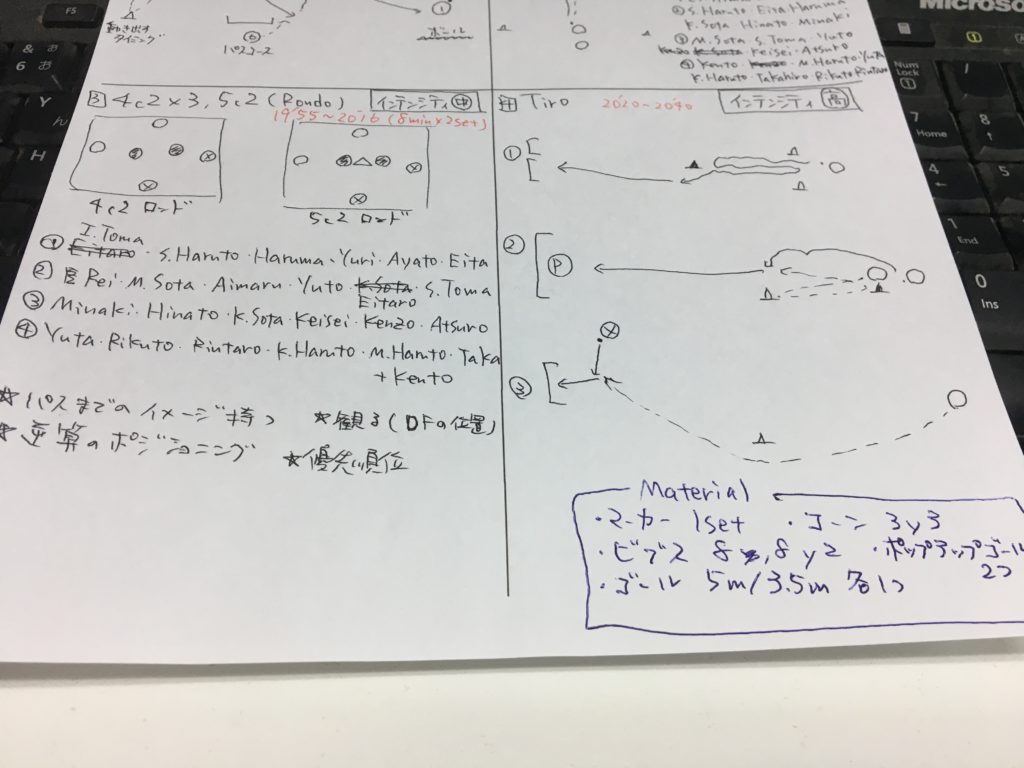 動き出す
タイミング
⑥
パスコース
①
ボール
② S. Haruto Eita Haruma
K. Sota Hinato Minaki
③ M. Sota S. Toma Yuto
Kenzo K.Sota Keisei・Atsuro
④ Kento Kenzo M.Haruto・Yuta
K. Haruto Takahiro Rikuto Rintaro
③ 4c2×3, 5c2 (Rondo) インテンシティ 中
19:55~20:16 (8min×2set)
4c2 ロンド
5c2 ロンド
I. Toma
① Eitaro・S. Haruto・Haruma・Yuri・Ayato・Eita
② Rei・M. Sota・Aimaru・Yuto・K.Sota・S.Toma
Eitaro
③ Minaki・Hinato・K.Sota・Keisei・Kenzo・Atsuro
④ Yuta・Rikuto・Rintaro・K.Haruto・M.Haruto・Taka
+ Kento
☆パスまでのイメージ持つ ☆観る(DFの位置)
☆逆算のポジショニング ☆優先順位
④ Tiro 20:20~20:40 インテンシティ 高
①
②
P
③
Material
・マーカー 1set ・コーン 3y3
・ビブス 8,8y2 ・ポップアップゴール
2つ
・ゴール 5m/3.5m 各1つ
Microso
F5
& お
6 お
Y ん
H
Num
Lock
/
7
Home
8
↑
4
←
5
1
End
0
Ins